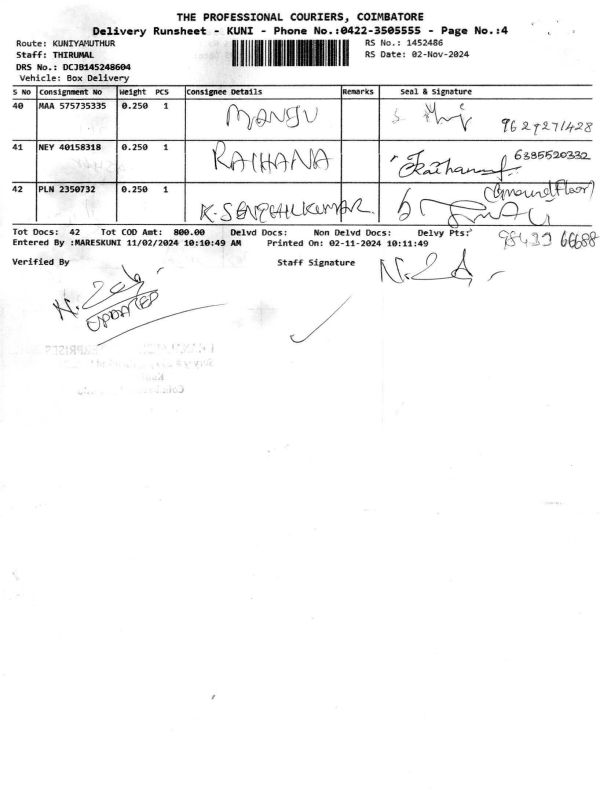 THE PROFESSIONAL COURIERS, COIMBATORE
Delivery Runsheet - KUNI - Phone No.:0422-3505555 - Page No.:4
Route: KUNIYAMUTHUR RS No.: 1452486
Staff: THIRUMAL RS Date: 02-Nov-2024
DRS No.: DCJB145248604
Vehicle: Box Delivery
S No Consignment No Weight PCS Consignee Details Remarks Seal & Signature
40 MAA 575735335 0.250 1 MANJU 9629271428
41 NEY 40158318 0.250 1 RAIHANA 6385520332
42 PLN 2350732 0.250 1 K. SENTHILKUMAR. (Ground Floor)
Tot Docs: 42 Tot COD Amt: 800.00 Delvd Docs: Non Delvd Docs: Delvy Pts: 98433 66688
Entered By :MARESKUNI 11/02/2024 10:10:49 AM Printed On: 02-11-2024 10:11:49
Verified By Staff Signature
UPDATED